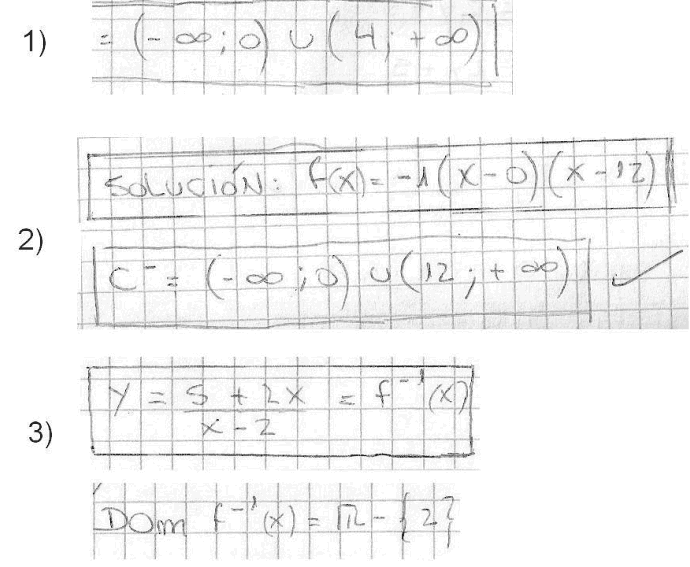 1) = (-∞; 0) ∪ (4; +∞)
2) SOLUCIÓN: f(x) = -1(x-0)(x-12)
C⁻ = (-∞; 0) ∪ (12; +∞) ✓
3) y = (5 + 2x)/(x - 2) = f⁻¹(x)
Dom f⁻¹(x) = ℝ - {2}